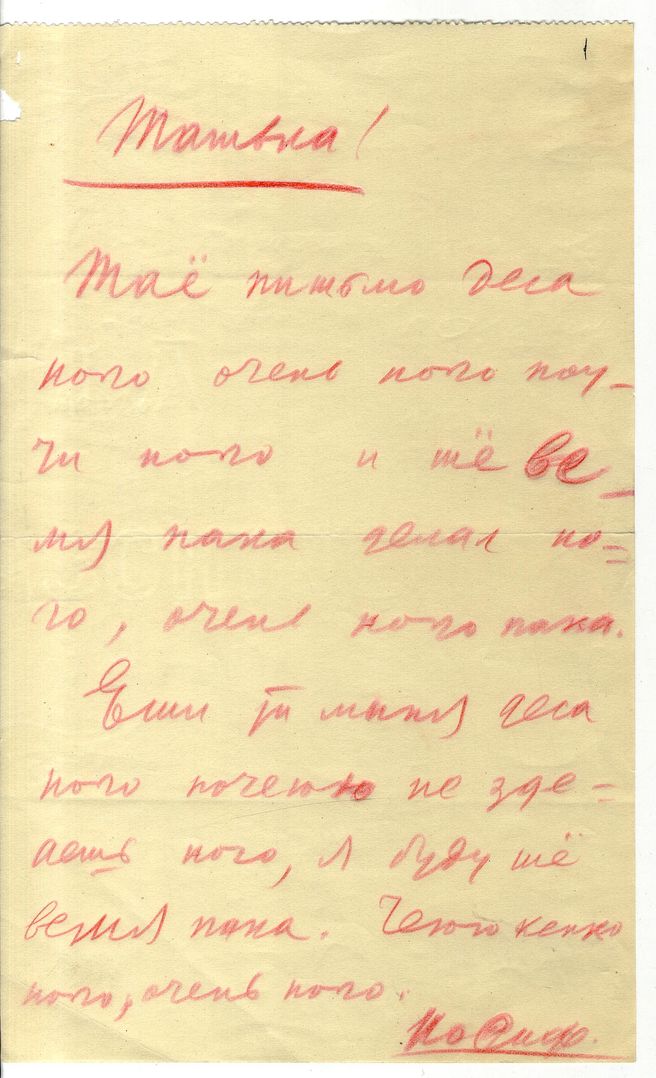 Ташька!
Таё пишьмо деса
ного очень ного поу-
чи ного и шё ве-
мя папа делал но-
го, очень ного папа.
Еши ти миня деса
ного почеюю не зде-
аешь ного, я буду шё
вемя папа. Чеюю кепко
ного, очень ного.
Иосиф.